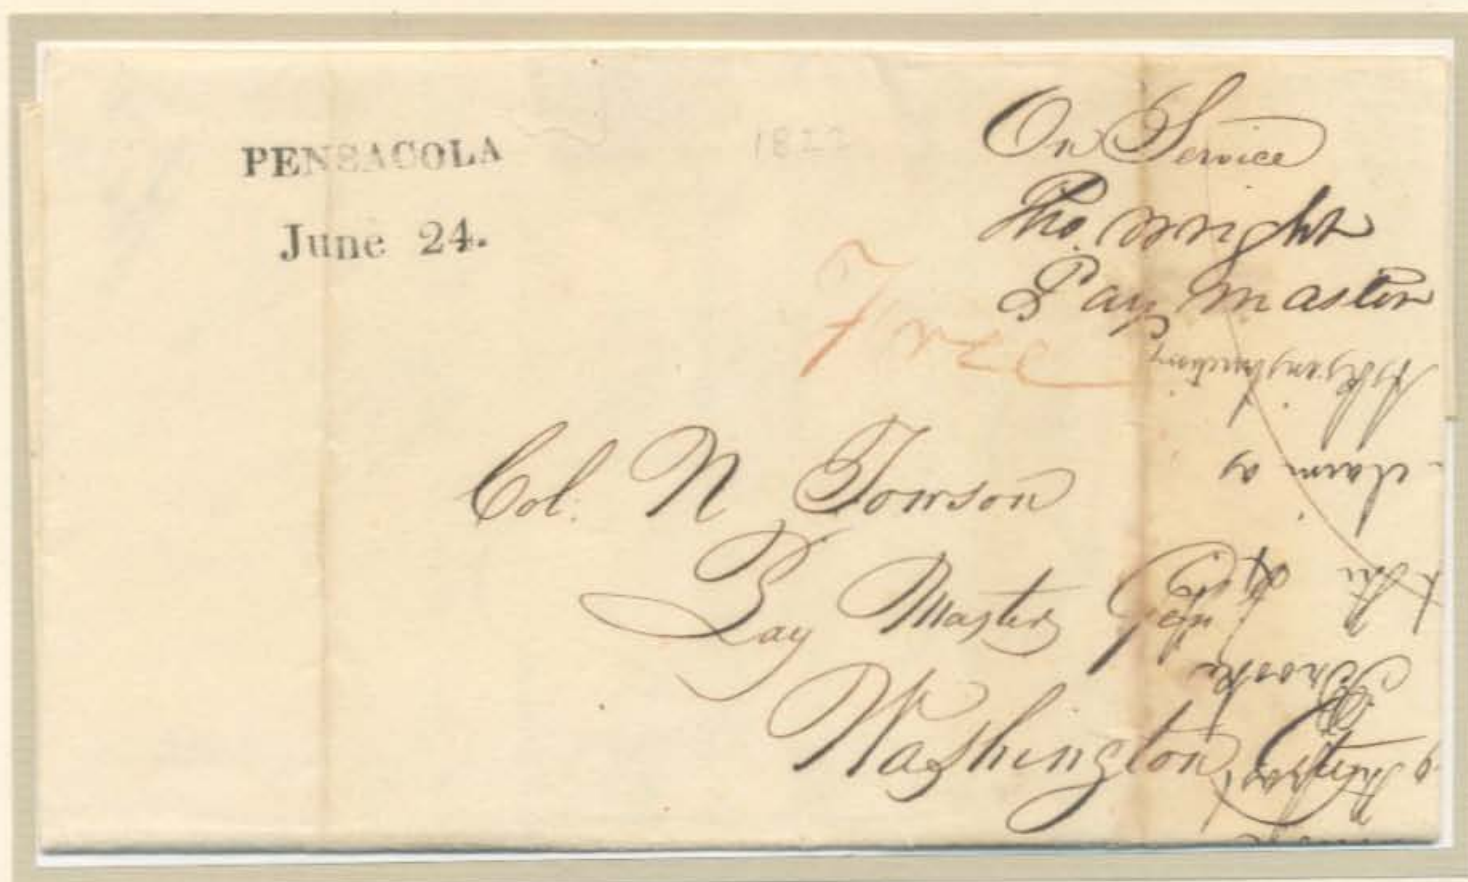 PENSACOLA
June 24.
1822
On Service
Tho. Wright
Pay Master
Free
Col. N Towson
Pay Master Gen
Washington City
claim of
Brooke